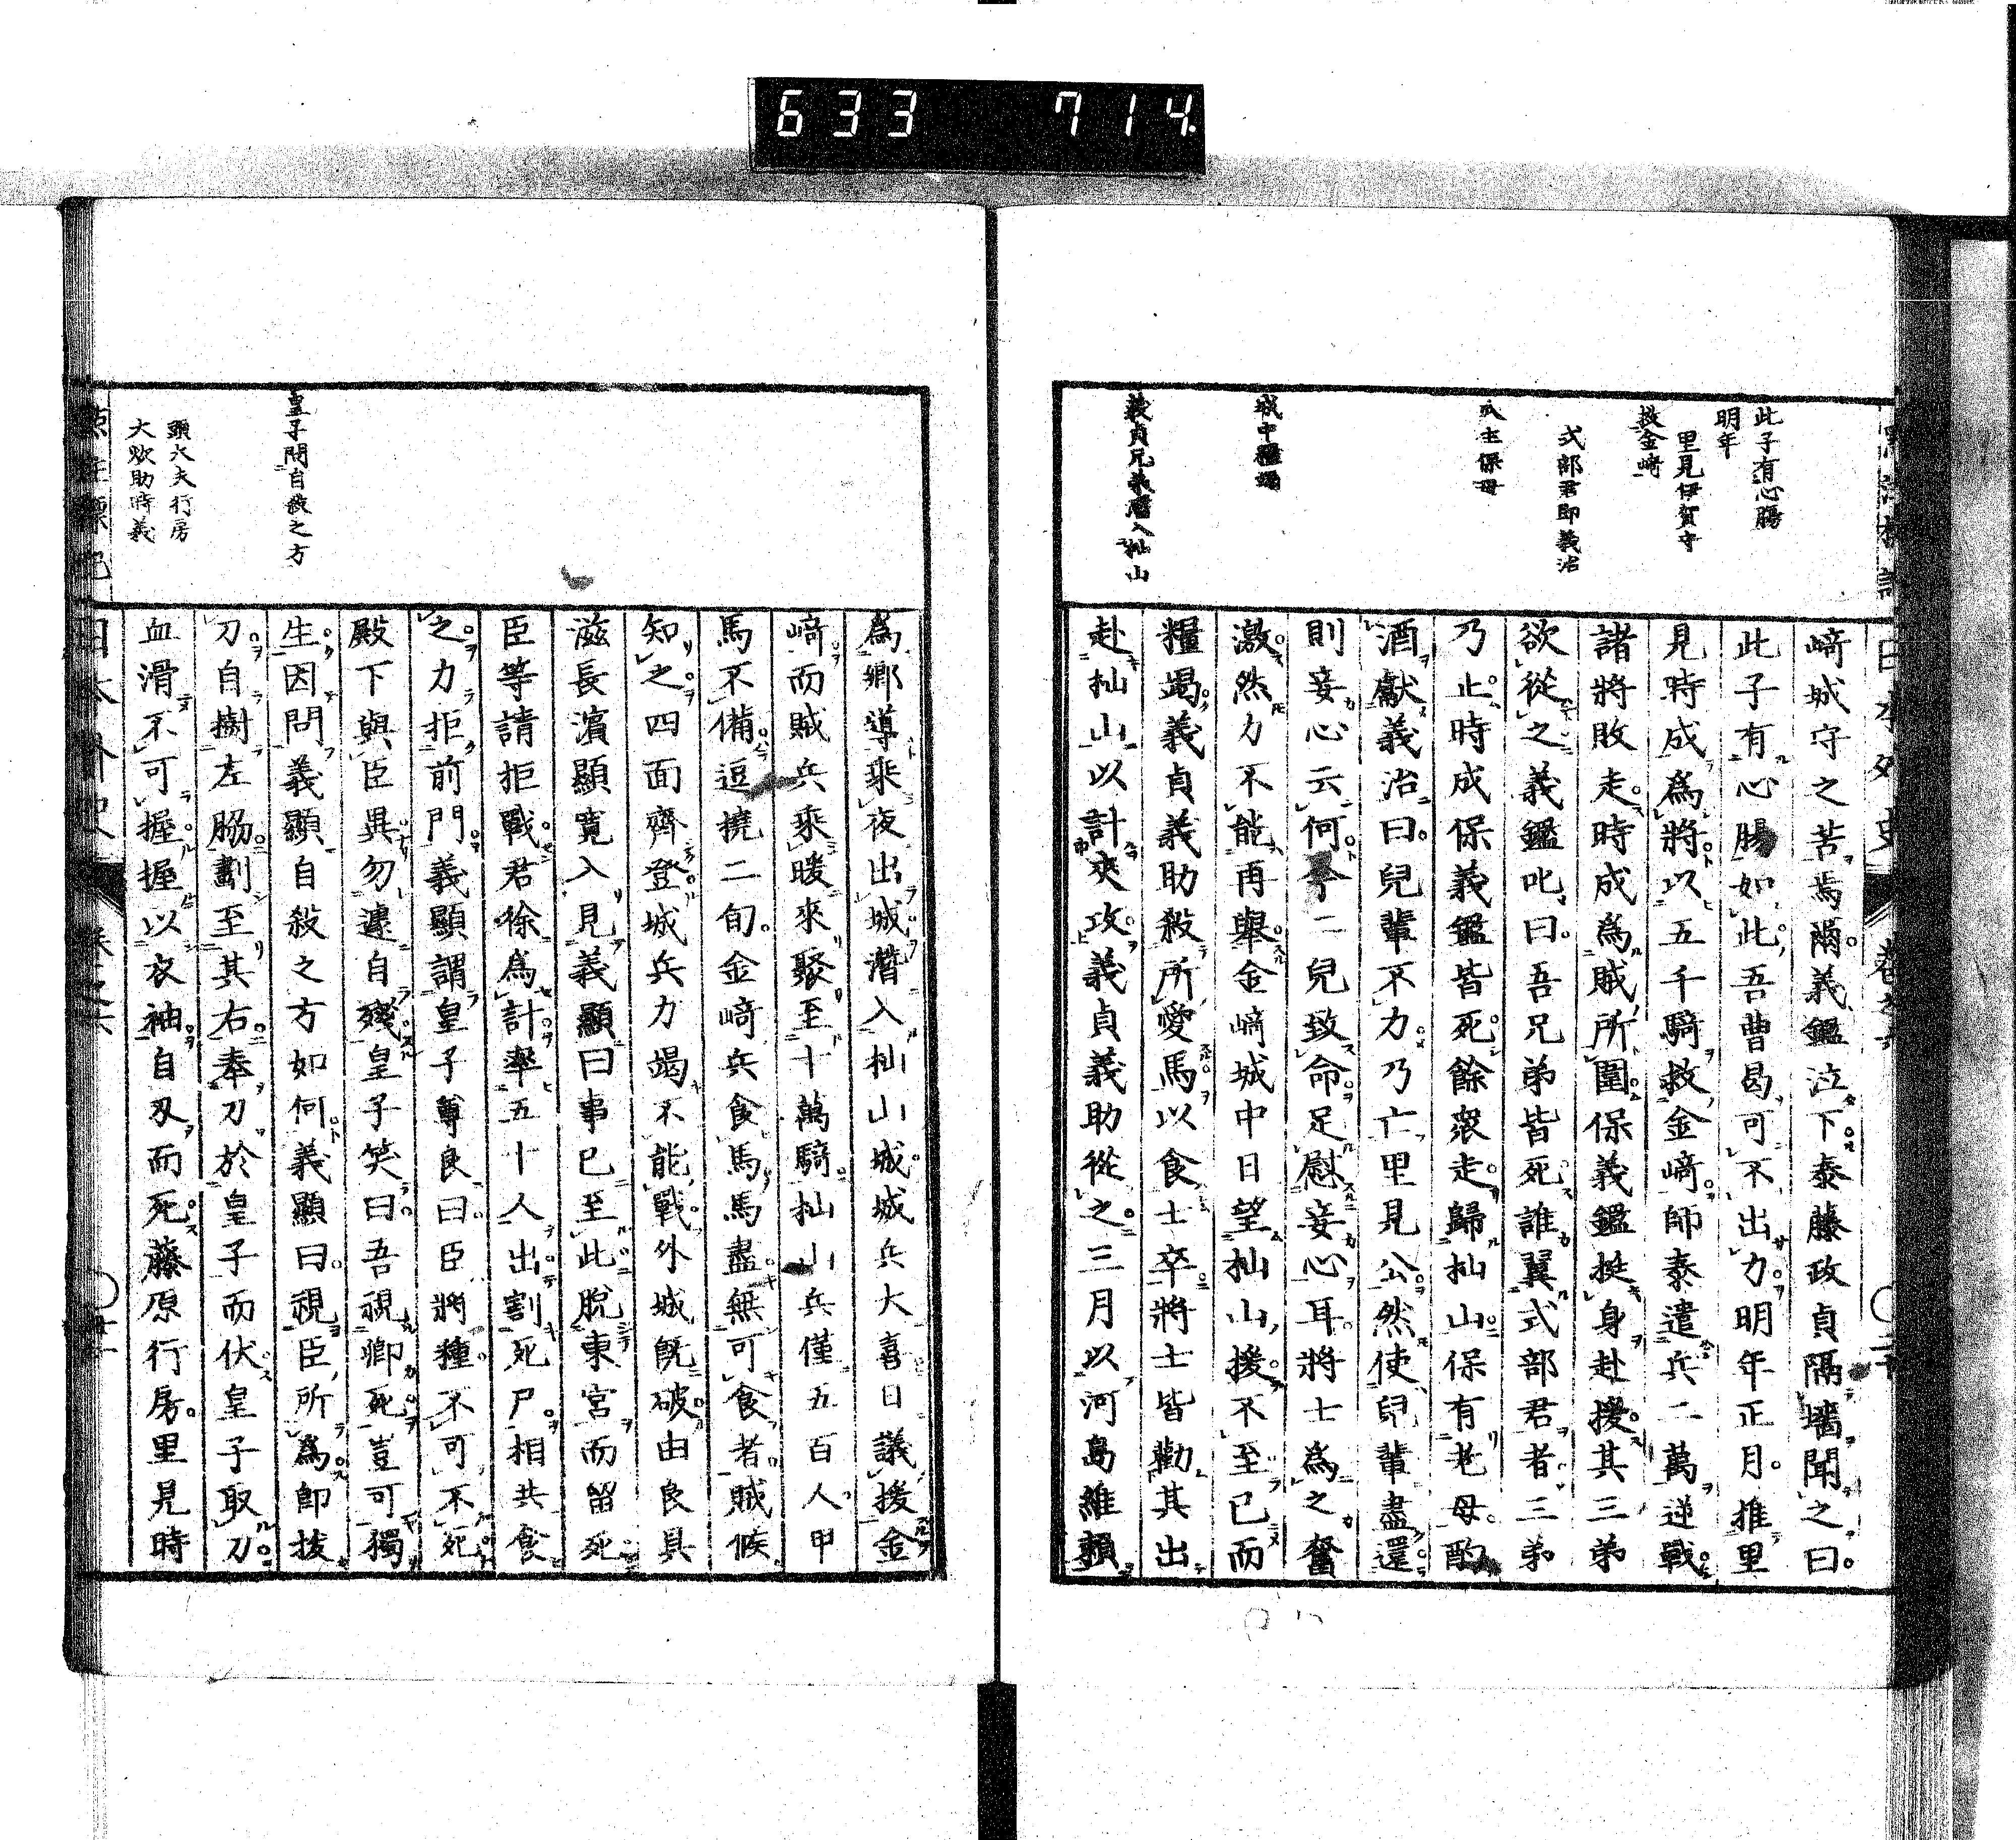 633 714
此子有心腸
明年
里見伊賀守
救金﨑
式部君即義治
瓜生保母
城中糧竭
義貞兄弟潛入杣山
日本外史
﨑城守之苦焉隔義鑑泣下泰藤政貞隔墻聞之曰
此子有心腸如此吾曹曷可不出力明年正月推里
見時成爲將以五千騎救金﨑師泰遣兵二萬逆戰
諸將敗走時成爲賊所圍保義鑑挺身赴援其三弟
欲從之義鑑叱曰吾兄弟皆死誰翼式部君者三弟
乃止時成保義鑑皆死餘衆走歸杣山保有老母酌
酒獻義治曰兒輩不力乃亡里見公然使兒輩盡還
則妾心云何今二兒致命足慰妾心耳將士爲之奮
激然力不能再舉金﨑城中日望杣山援不至已而
糧竭義貞義助殺所愛馬以食士卒將士皆勸其出
赴杣山以計夾攻義貞義助從之三月以河島維賴
皇子問自殺之方
頭大夫行房
大欵助時義
爲鄕導乘夜出城潛入杣山城城兵大喜日議援金
﨑而賊兵乘暖來聚至十萬騎杣山兵僅五百人甲
馬不備逗撓二旬金﨑兵食馬馬盡無可食者賊候
知之四面齊登城兵力竭不能戰外城旣破由良具
滋長濱顯寬入見義顯曰事已至此脫東宮而留死
臣等請拒戰君徐爲計率五十人出割死尸相共食
之力拒前門義顯謂皇子尊良曰臣將種不可不死
殿下與臣異勿遽自殘皇子笑曰吾視卿死豈可獨
生因問義顯自殺之方如何義顯曰視臣所爲卽拔
刀自樹左脇劃至其右奉刀於皇子而伏皇子取刀
血滑不可握握以衣袖自刄而死藤原行房里見時
日本外史